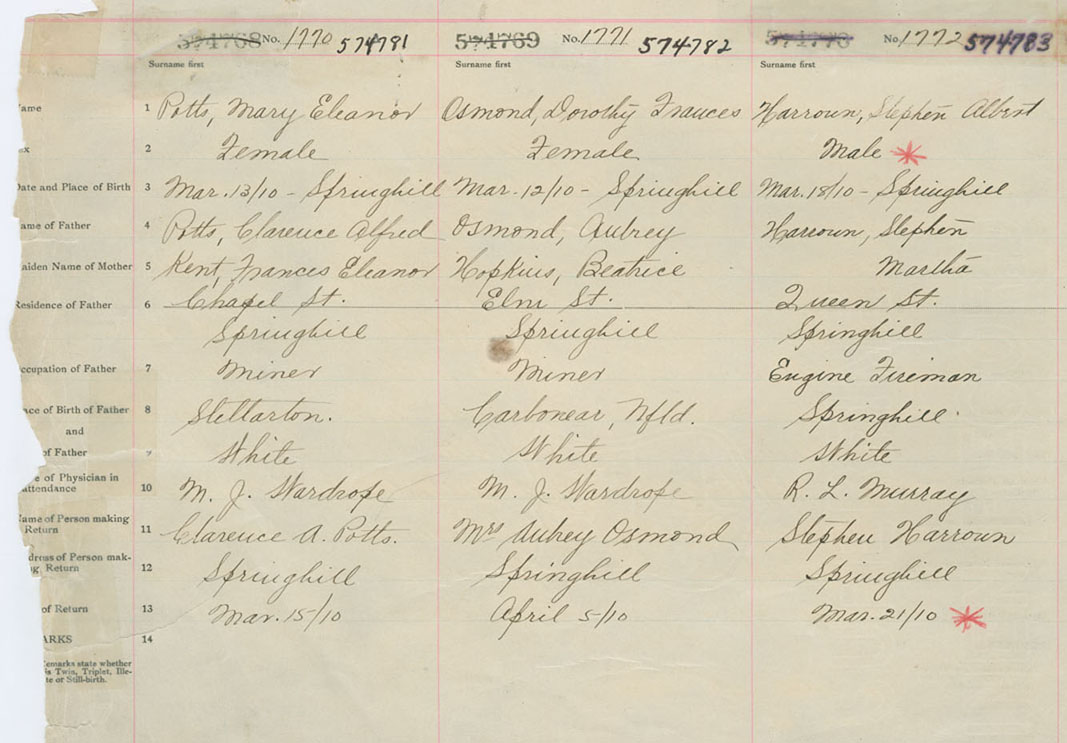 574768 No. 1770 574781 574769 No. 1771 574782 574770 No. 1772 574783
Surname first Surname first Surname first
ame 1 Potts, Mary Eleanor Osmond, Dorothy Frances Harroun, Stephen Albert
ex 2 Female Female Male
Date and Place of Birth 3 Mar. 13/10 - Springhill Mar. 12/10 - Springhill Mar. 18/10 - Springhill
ame of Father 4 Potts, Clarence Alfred Osmond, Aubrey Harroun, Stephen
aiden Name of Mother 5 Kent, Frances Eleanor Hopkins, Beatrice Martha
Residence of Father 6 Chapel St. Elm St. Queen St.
Springhill Springhill Springhill
ccupation of Father 7 Miner Miner Engine Fireman
ace of Birth of Father 8 Stellarton. Carbonear, Nfld. Springhill.
and
of Father 9 White White White
e of Physician in
attendance 10 M. J. Wardrope M. J. Wardrope R. L. Murray
Name of Person making
Return 11 Clarence A. Potts. Mrs Aubrey Osmond Stephen Harroun
dress of Person mak-
ng Return 12 Springhill Springhill Springhill
of Return 13 Mar. 15/10 April 5/10 Mar. 21/10
ARKS 14
Remarks state whether
is Twin, Triplet, Ille-
te or Still-birth.